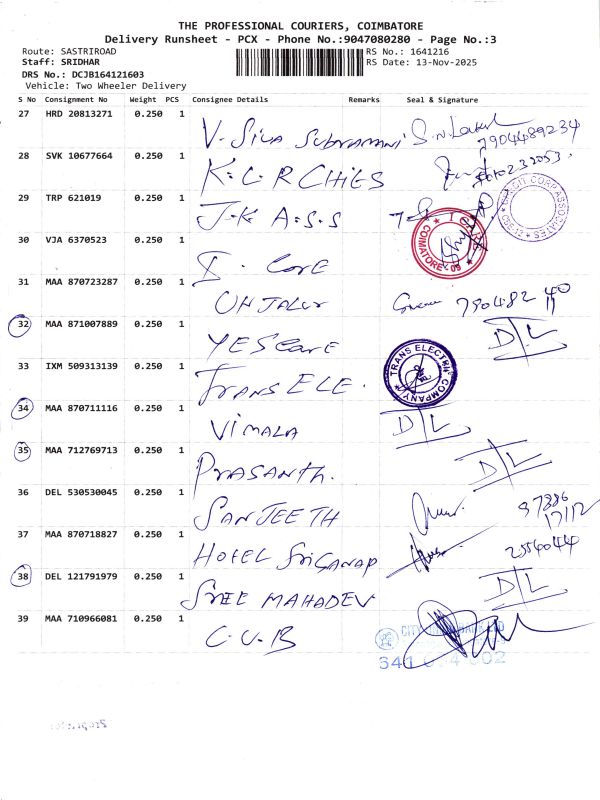 THE PROFESSIONAL COURIERS, COIMBATORE
Delivery Runsheet - PCX - Phone No.:9047080280 - Page No.:3
Route: SASTRIROAD RS No.: 1641216
Staff: SRIDHAR RS Date: 13-Nov-2025
DRS No.: DCJB164121603
Vehicle: Two Wheeler Delivery
S No Consignment No Weight PCS Consignee Details Remarks Seal & Signature
27 HRD 20813271 0.250 1 V. Siva Subramani 7904489234
28 SVK 10677664 0.250 1 K.C.R CHIES
29 TRP 621019 0.250 1 J.K A.S.S
30 VJA 6370523 0.250 1 I. Core
COIMATORE
31 MAA 870723287 0.250 1 UNJALUR
32 MAA 871007889 0.250 1 YES Care D/L
33 IXM 509313139 0.250 1 TRANS ELE.
TRANS ELECTRIC COMPANY
34 MAA 870711116 0.250 1 VIMALA D/L
35 MAA 712769713 0.250 1 PRASANTH. D/L
36 DEL 530530045 0.250 1 SANJEETH 97886 17112
37 MAA 870718827 0.250 1 HOTEL SriGANAP 2554044
38 DEL 121791979 0.250 1 SREE MAHADEV D/L
39 MAA 710966081 0.250 1 C.U.B
CITY